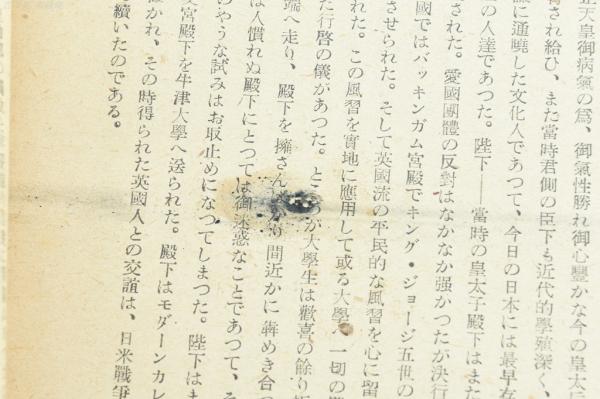 正天皇御病氣の爲、御氣性勝れ御心豐かな今の皇太后
され給ひ、また當時君側の臣下も近代的學殖深く、
に通曉した文化人であつて、今日の日本には最早存
の人達であつた。陛下——當時の皇太子殿下はまた
された。愛國團體の反對はなかなか强かつたが決行
國ではバッキンガム宮殿でキング・ジョージ五世の
させられた。そして英國流の平民的な風習を心に留
れた。この風習を實地に應用して或る大學へ一切の
た行啓の儀があつた。ところが大學生は歡喜の餘り
端へ走り、殿下を擁さん 間近かに犇めき合つ
は人慣れぬ殿下にとつては御迷惑なことであつて、そ
のやうな試みはお取止めになつてしまつた。陛下はま
宮殿下を牛津大學へ送られた。殿下はモダーンカレ
かれ、その時得られた英國人との交誼は、日米戰爭
續いたのである。